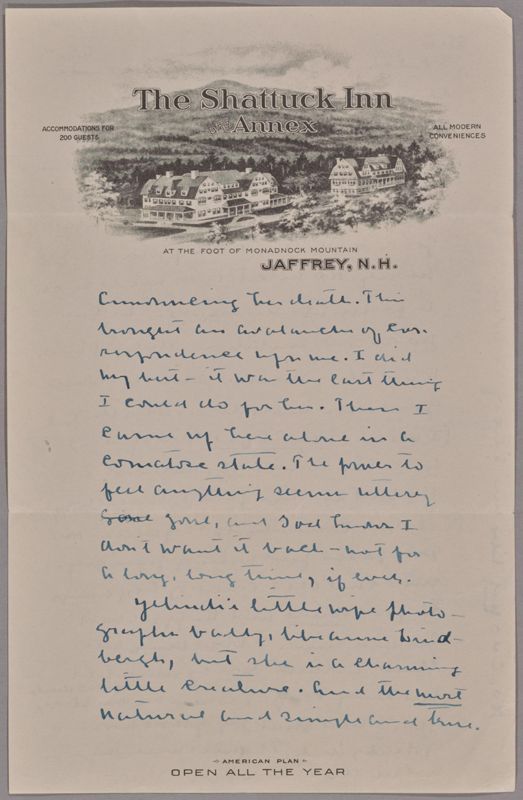 The Shattuck Inn
and Annex
ACCOMMODATIONS FOR
200 GUESTS
ALL MODERN
CONVENIENCES
AT THE FOOT OF MONADNOCK MOUNTAIN
JAFFREY, N.H.
announcing her death. This
brought an avalanche of cor-
respondence upon me. I did
my best - it was the last thing
I could do for her. Then I
came up here alone in a
comatose state. The power to
feel anything seems utterly
gone gone, and God knows I
don't want it back - not for
a long, long time, if ever.
Yehudi's little wife photo-
graphs badly, like Anne Lind-
bergh, but she is a charming
little creature. And the most
natural and simple and true.
AMERICAN PLAN
OPEN ALL THE YEAR